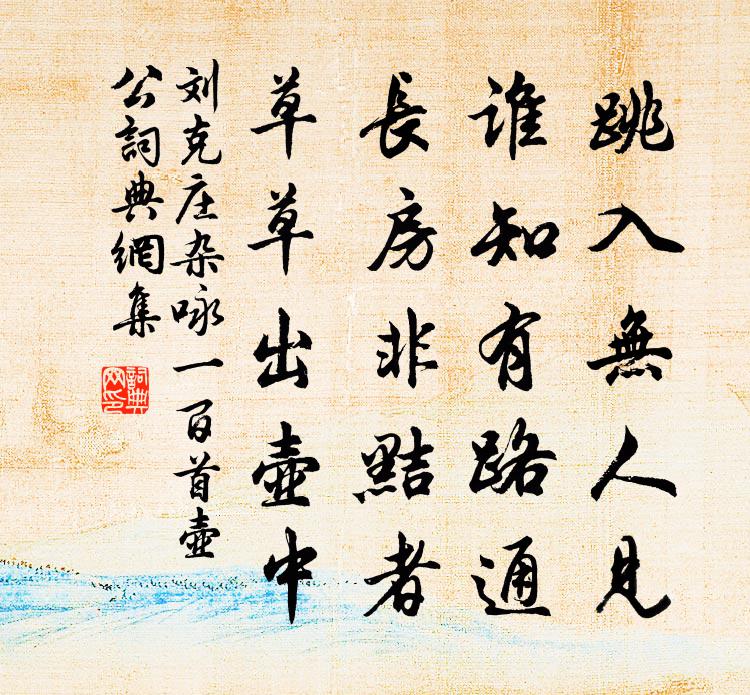 跳入無人見
誰知有路通
長房非黠者
草草出壺中
刘克庄杂咏一百首壶
公詞典網集
詞典网印